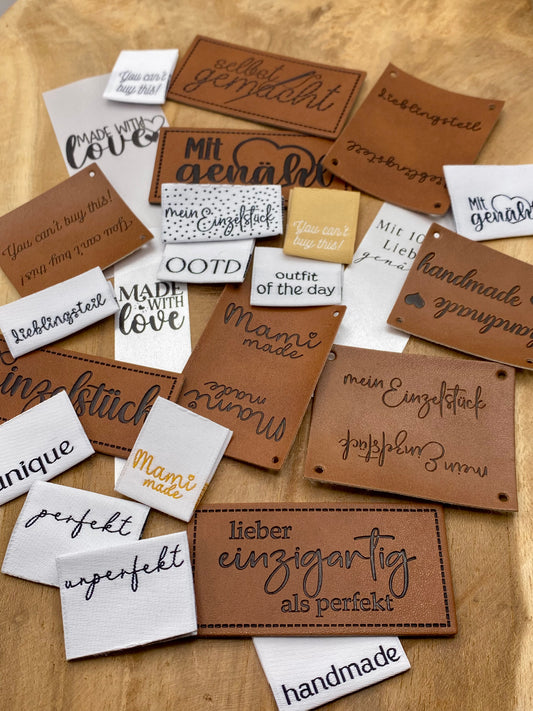 You can't
buy this!
selbst
gemacht
Lieblingsteil
Lieblingsteil
MADE WITH
love
Mit
genäht
You can't buy this!
You can't buy this!
mein Einzelstück
You can't
buy this!
Mit
genäht
Mit 10
Liebe
genäh
OOTD
outfit
of the day
handmade
handmade
Lieblingsteil
MADE
WITH
love
Mami
made
Mami
made
mein Einzelstück
mein Einzelstück
Einzelstück
unique
Mami
made
perfekt
unperfekt
lieber
einzigartig
als perfekt
handmade